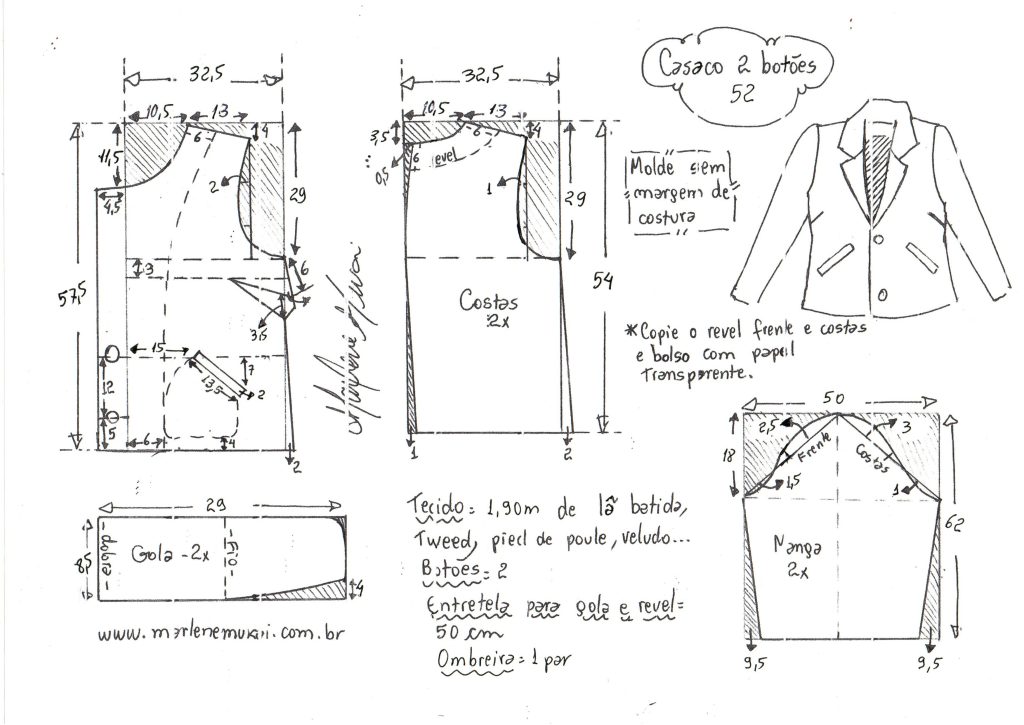 Casaco 2 botões
52
32,5
10,5
13
4
11,5
6
2
29
4,5
3
6
57,5
3,5
15
7
13,5
2
12
5
6
4
2
32,5
10,5
13
4
3,5
6
6
revel
0,5
1
29
54
Costas
2x
1
2
Molde sem
margem de
costura
*Copie o revel frente e costas
e bolso com papel
transparente.
50
2,5
3
18
Frente
Costas
1,5
1
62
Manga
2x
9,5
9,5
29
8,5
-dobra-
Gola - 2x
-Fio-
4
www.marlenemukai.com.br
Tecido= 1,90m de lã batida,
Tweed, pied de poule, veludo...
Botões= 2
Entretela para gola e revel=
50 cm
Ombreira= 1 par